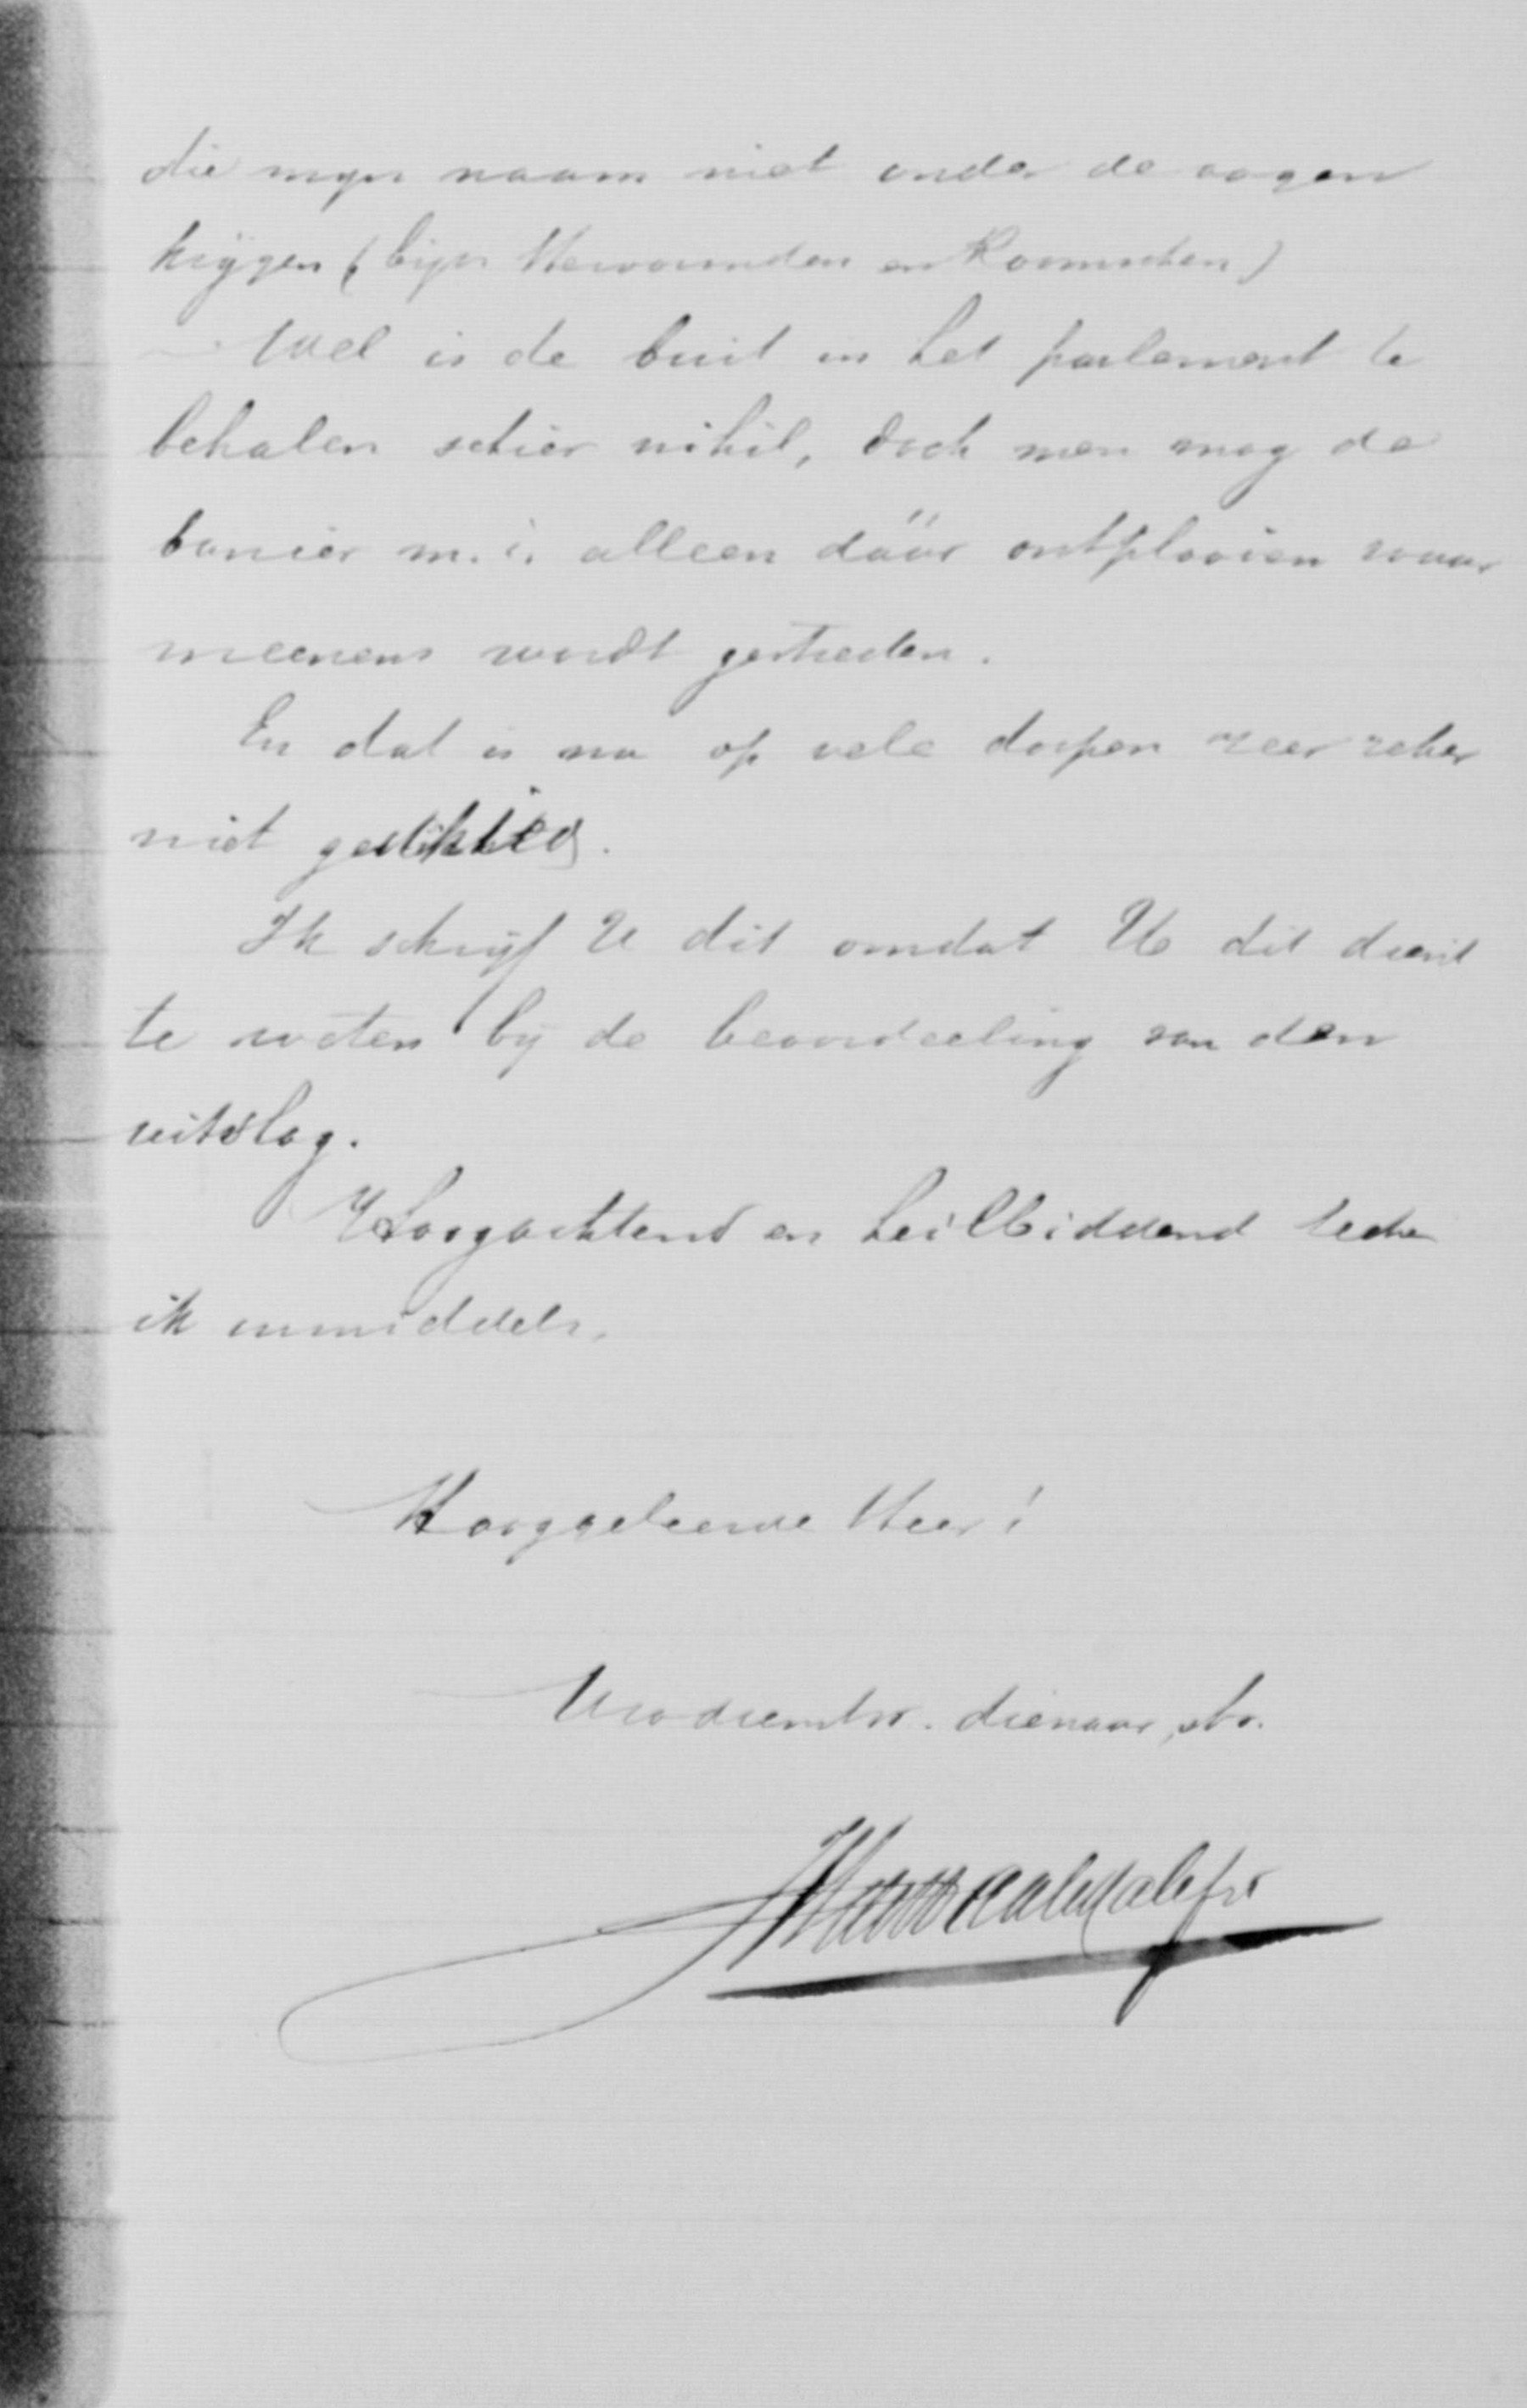 die mijn naam niet onder de oogen
krijgen (bijv. Hervormden en Roomschen)
Wel is de buit in het parlement te
behalen schier nihil, doch men mag de
banier m. i. alleen dáár ontplooien waar
meenens wordt gestreden.
En dat is nu op vele dorpen zeer zeker
niet geschied.
Ik schrijf U dit omdat U dit dient
te weten bij de beoordeeling van den
uitslag.
Hoogachtend en heilbiddend teeken
ik inmiddels.
Hooggeleerde Heer!
Uw dienstw. dienaar,